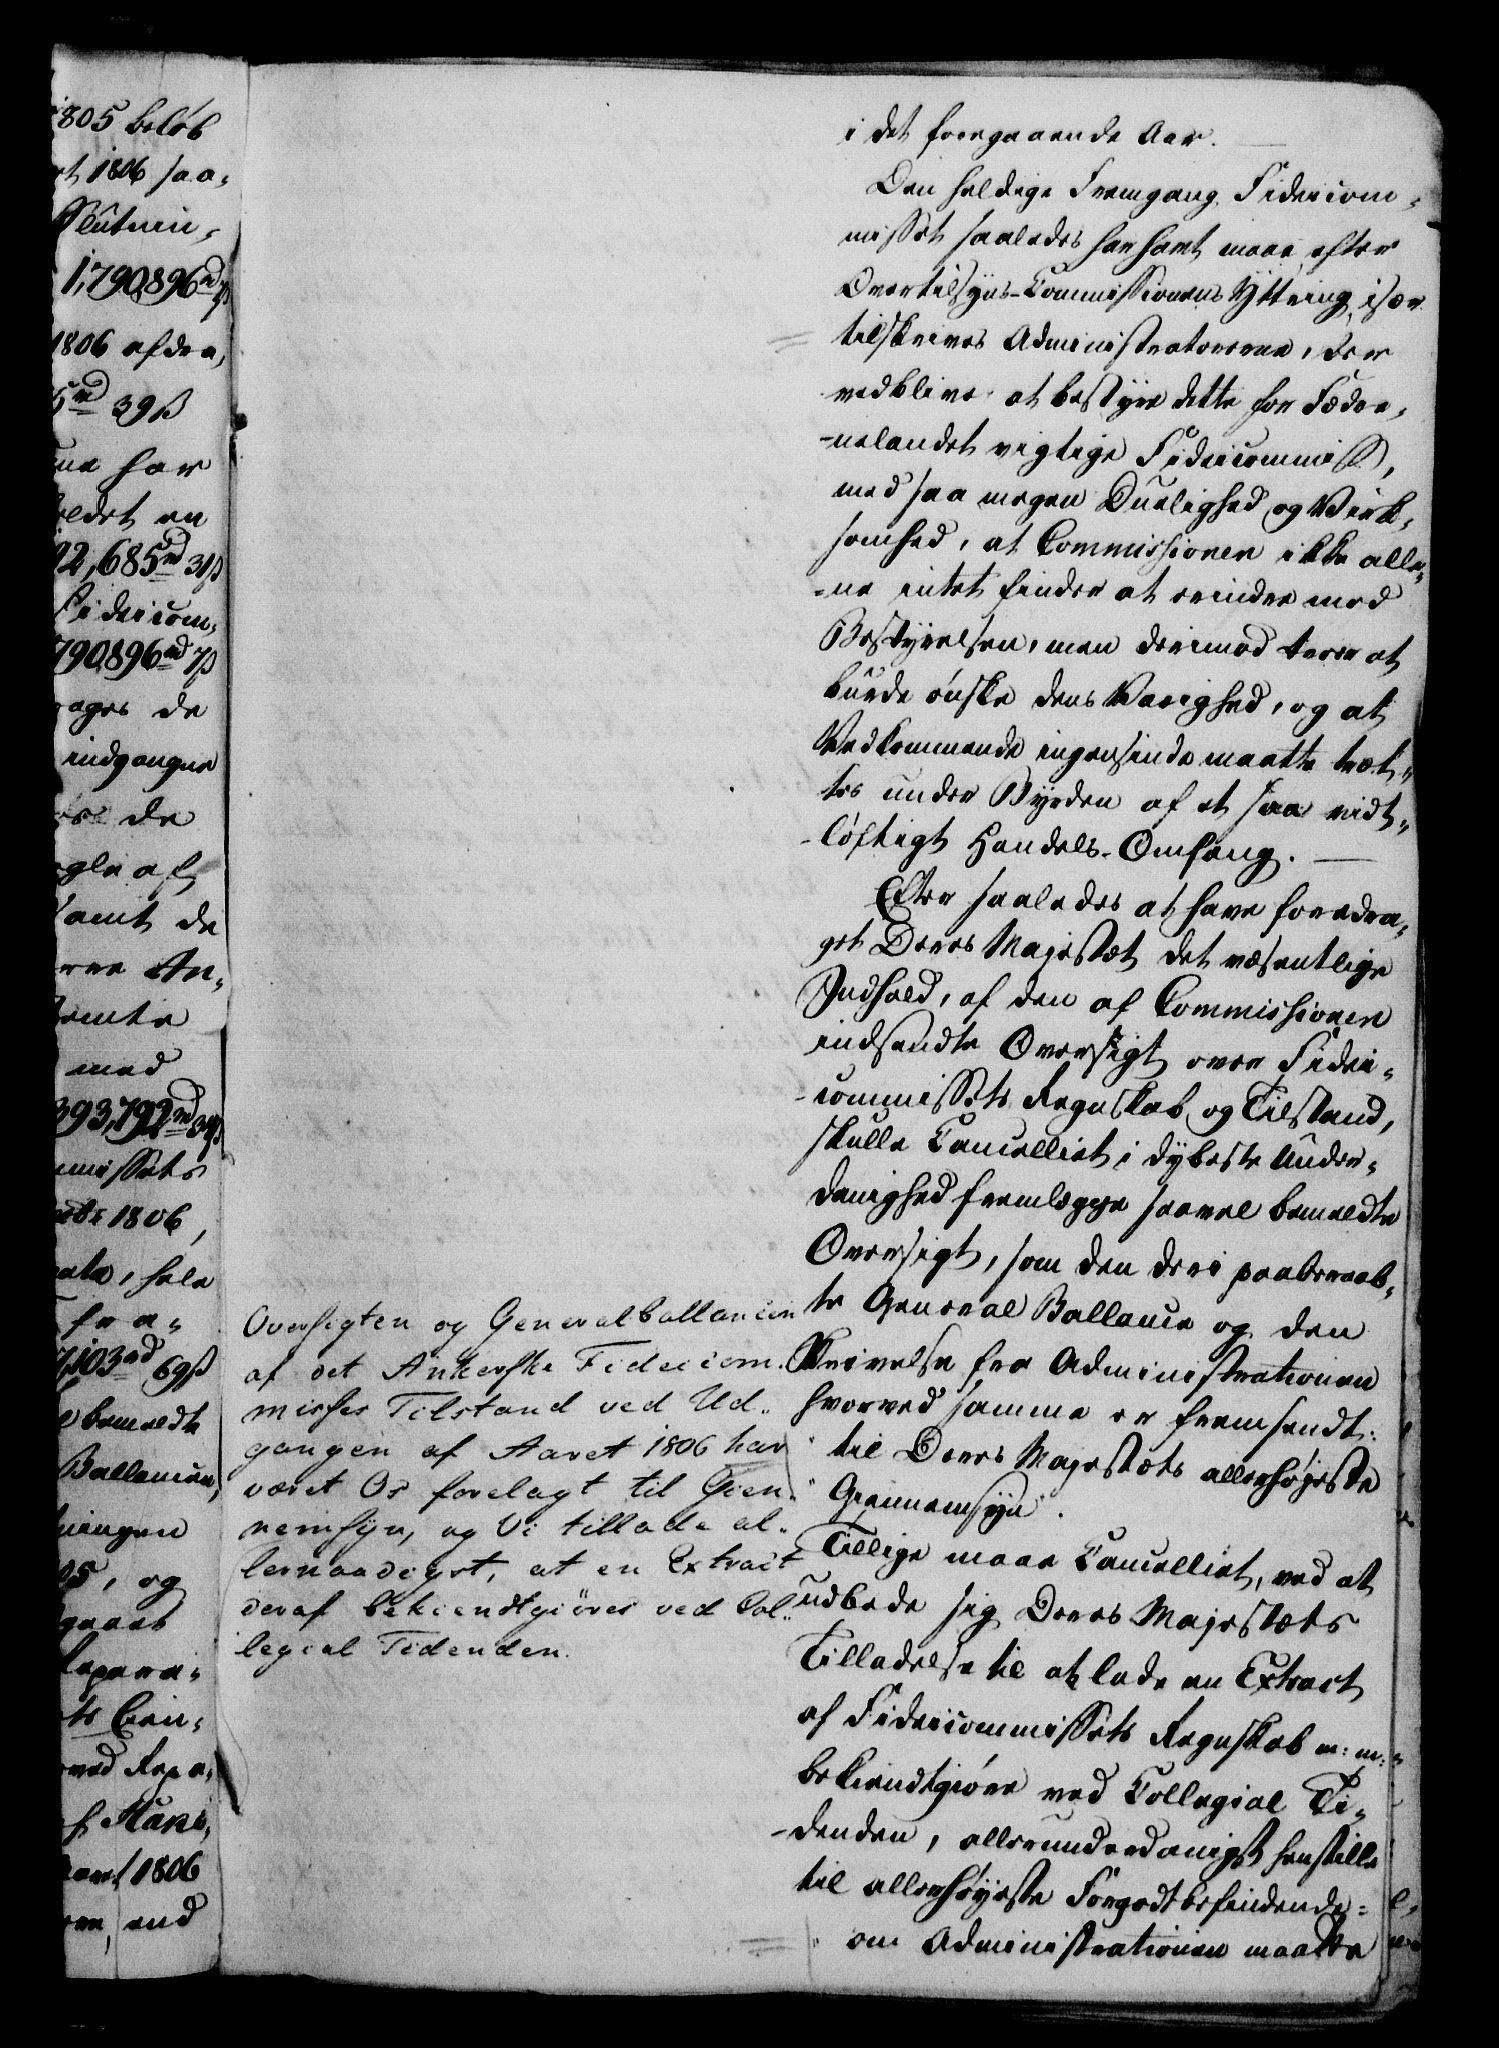 1805 beløb
1806 saa-
Slutnin-
1,790,896rd 7ß
1806 afdra,
5rd 39ß
har
en
92,685rd 31ß
Fideicom-
790,896rd 7ß
de
indgangne
de
af
samt de
An-
med
393,792rd
missets
1806,
hele
fra-
7,103rd 69ß
bemeldte
Ballancen,
ningen
05, og
Repara-
ved Repa-
1806
end
i det foregaaende Aar.
Den heldige Fremgang Fideicom-
misset saaledes har havt maae efter
Overtilsyns-Commissionens Yttring, især
tilskrives Administratorerne, der
vedblive at bestyre dette for Fædre-
-nelandet vigtige Fideicommiss,
med saa megen Duelighed og Virk-
somhed, at Commissionen ikke alle-
-ne intet finder at erindre mod
Bestyrelsen, men derimod troer at
burde ønske dens Varighed, og at
Vedkommende ingensinde maatte træt-
tes under Byrden af et saa vidt-
-løftigt Handels-Omfang.
Efter saaledes at have foredra-
get Deres Majestæt det væsentlige
Indhold, af den af Commissionen
indsendte Oversigt over Fidei-
-commissets Regnskab og Tilstand,
skulle Cancelliet i dybeste Under-
danighed fremlægge saavel bemeldte
Oversigt, som den deri paaberaab-
te General Ballance og den
Skrivelse fra Administrationen
hvorved samme er fremsendt
til Deres Majestæts allerhøjeste
Giennemsyn.
Tillige maae Cancelliet, ved at
udbede sig Deres Majestæts
Tilladelse til at lade en Extract
af Fideicommissets Regnskab m: m:
bekiendtgiøre ved Collegial Ti-
-denden, allerunderdanigst henstille
til allerhøyeste Forgodtbefindende
om Administrationen maatte
Oversigten og Generalballancen
af det Ankerske Fideicom-
misses Tilstand ved Ud-
gangen af Aaret 1806 har
været Os forelagt til Gien-
nemsyn, og Vi tillade al-
lernaadigst, at en Extract
deraf bekiendtgiøres ved Col-
legial Tidenden.